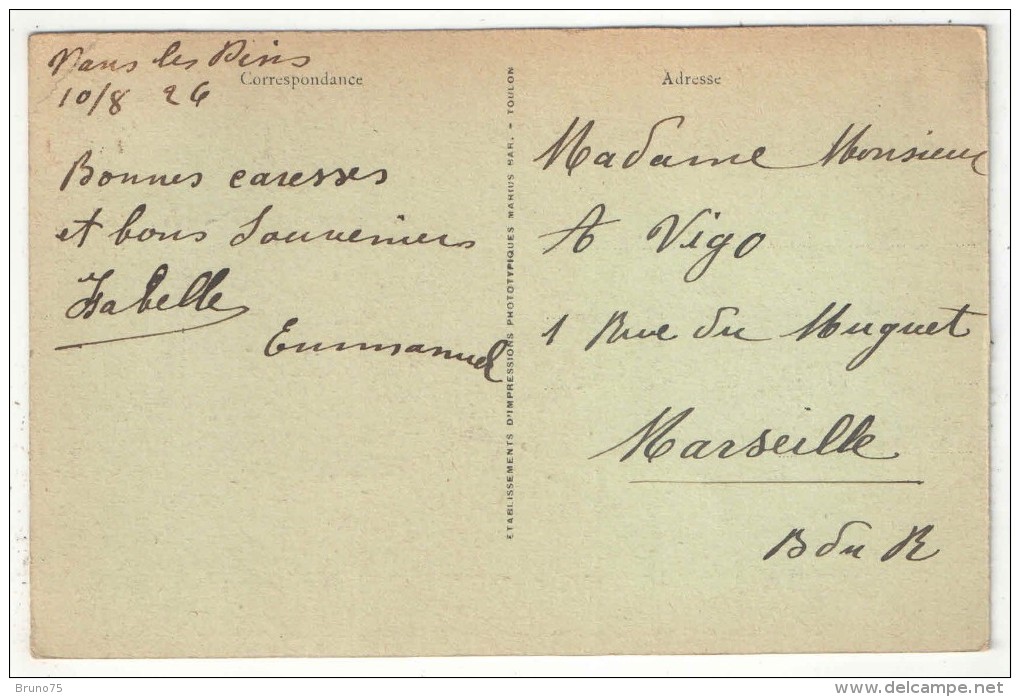 Nans les Pins
10/8 26
Correspondance
Bonnes caresses
et bons Souveniers
Isabelle
Emmanuel
ETABLISSEMENTS D'IMPRESSIONS PHOTOTYPIQUES MARIUS BAR. - TOULON
Adresse
Madame Monsieur
A Vigo
1 Rue du Muguet
Marseille
B du R
Bruno75
www.delcampe.net